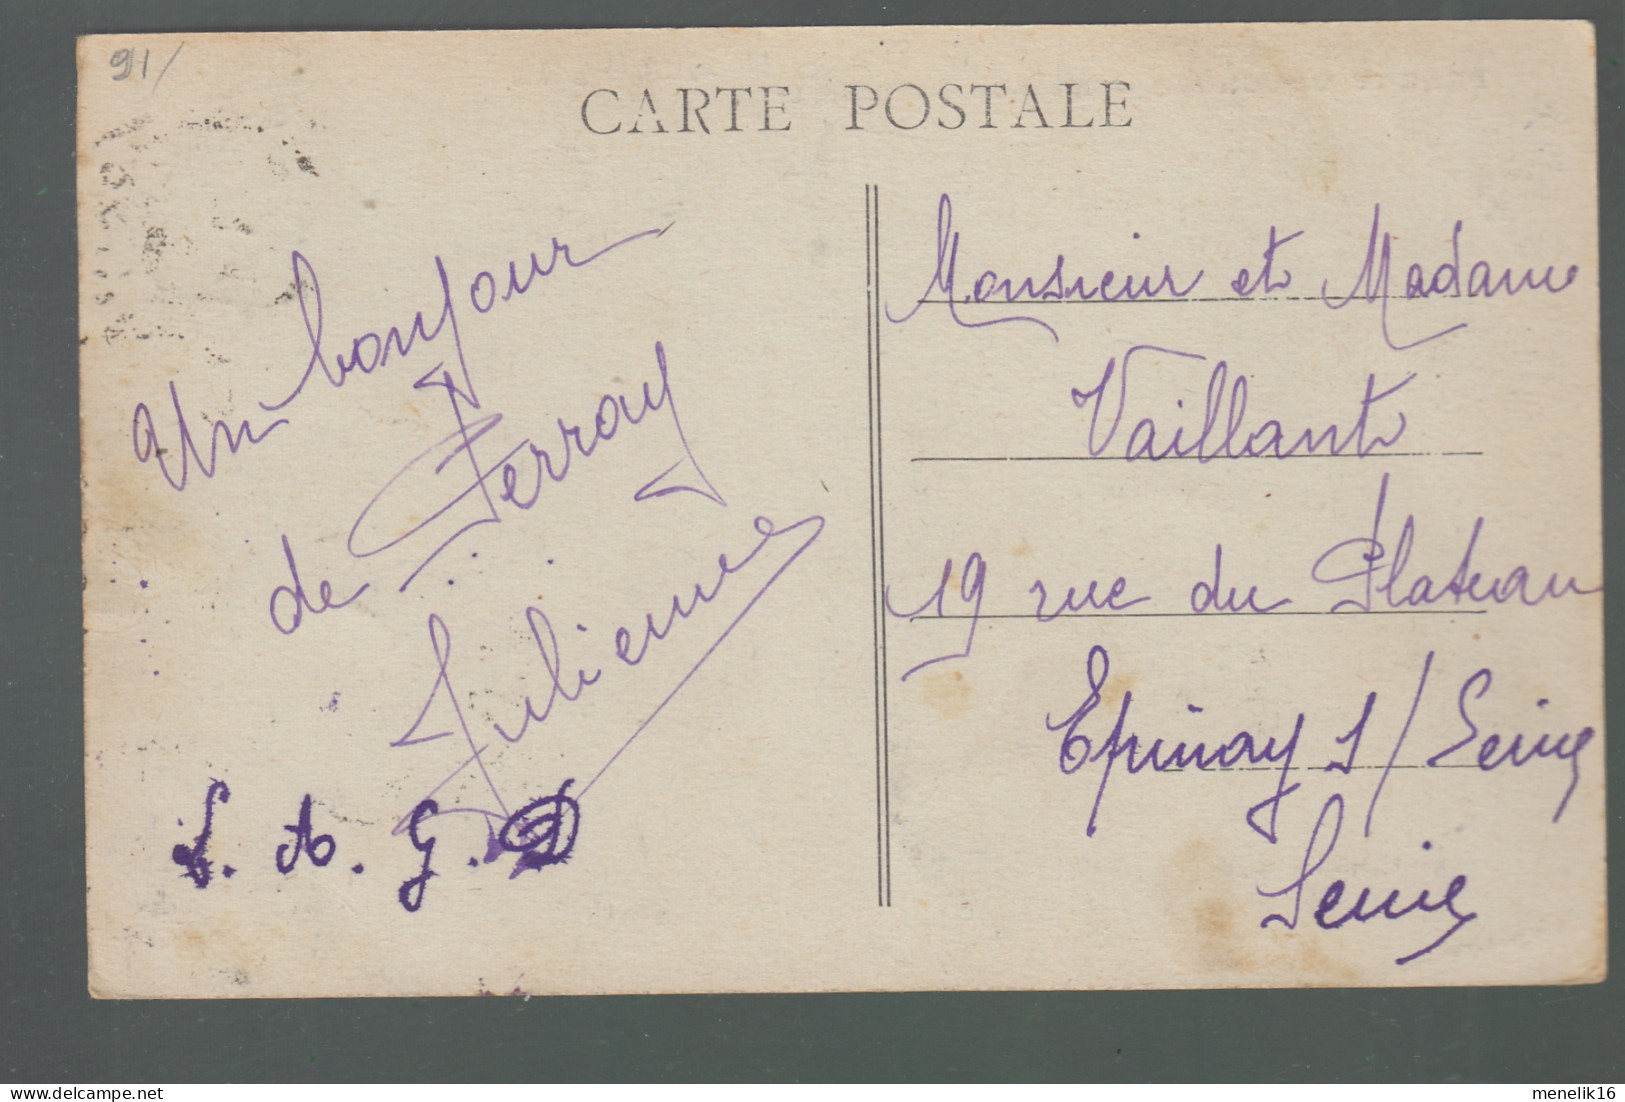 91/
CARTE POSTALE
Un bonjour
de Perray
Julienne
S. A. G. D
Monsieur et Madame
Vaillant
19 rue du Plateau
Epinay s/ Seine
Seine
delcampe.net
menelik16